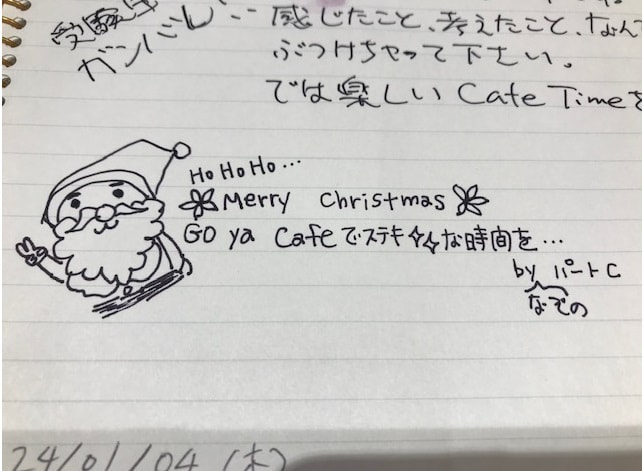 受験生
ガンバレ‥
感じたこと、考えたこと、なん
ぶつけちゃって下さい。
では楽しい Cafe Timeを
HoHoHo…
Merry Christmas
GO ya Cafeでステキな時間を…
by パートC
なでの
24/01/04 (木)